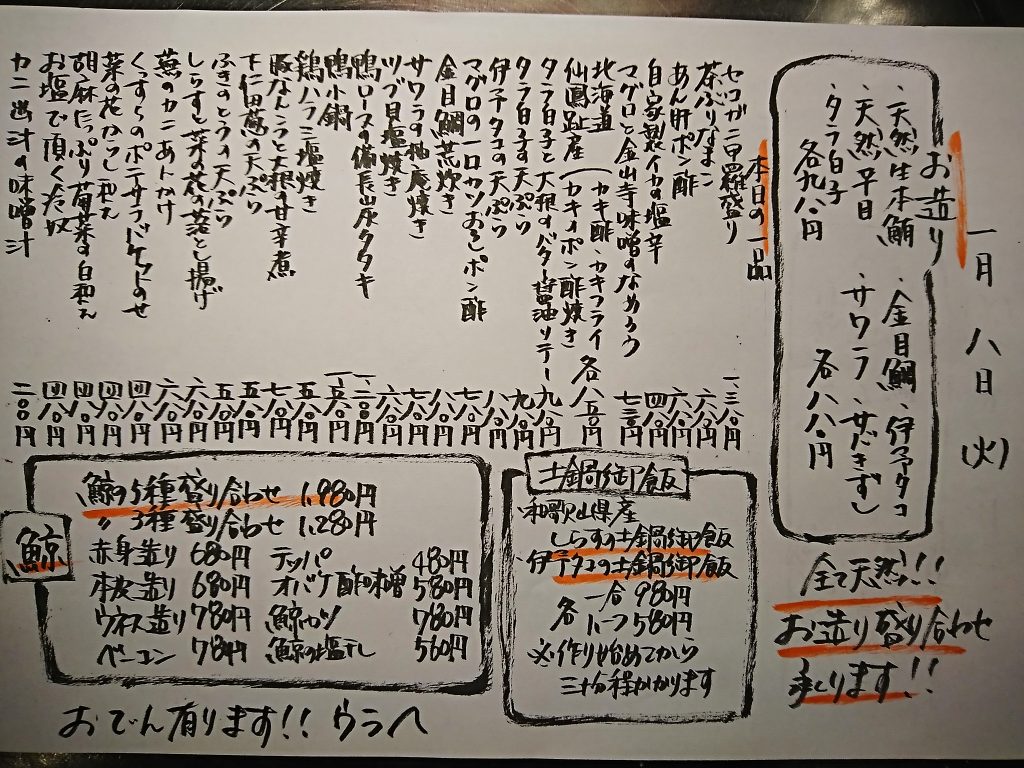 一月 八日 (火)
お造り
・天然生本鮪 ・金目鯛 ・伊予タコ
・天然平目 サワラ ・サバきずし
・タラ白子
各九八〇円 各八八〇円
全て天然!!
お造り盛り合わせ
承ります!!
本日の一品
セコガニ甲羅盛り 一、三八〇円
茶ぶりなまこ 六八〇円
あん肝ポン酢 六八〇円
自家製イカの塩辛 四八〇円
マグロと金山寺味噌のなめろう 七三〇円
北海道 (カキ酢・カキフライ
仙鳳趾産 (カキのポン酢焼き 各八五〇円
タラ白子と大根のバター醤油ソテー 九八〇円
タラ白子の天ぷら 九八〇円
伊予タコの天ぷら 八八〇円
マグロの一口カツおろしポン酢 七八〇円
金目鯛荒炊き 八八〇円
サワラの柚庵焼き 七八〇円
ツブ貝塩焼き 六八〇円
鴨ロースの備長山灰タタキ 一、二〇〇円
鴨小鍋 一、五〇〇円
鶏ハラミ塩焼き 五八〇円
豚なんこつと大根の甘辛煮 七八〇円
下仁田葱の天ぷら 五八〇円
ふきのとうの天ぷら 五八〇円
しらすと菜の花の落とし揚げ 六八〇円
蕪のカニあんかけ 六八〇円
くずし豆腐のポテサラバケットのせ 四八〇円
菜の花からし和え 四八〇円
胡麻たっぷり菊菜の白和え 四八〇円
お塩で頂く冷奴 四八〇円
カニ出汁の味噌汁 二八〇円
土鍋御飯
和歌山県産
しらすの土鍋御飯
伊予タコの土鍋御飯
各 一合 980円
ハーフ 580円
※作り始めてから
三十分程かかります
鯨
鯨の5種盛り合わせ 1,980円
〃 3種盛り合わせ 1,280円
赤身造り 680円 テッパ 480円
本皮造り 680円 オバケ酢味噌 580円
ウネス造り 780円 鯨カツ 780円
ベーコン 780円 鯨の塩干し 560円
おでん有ります!! ウラへ